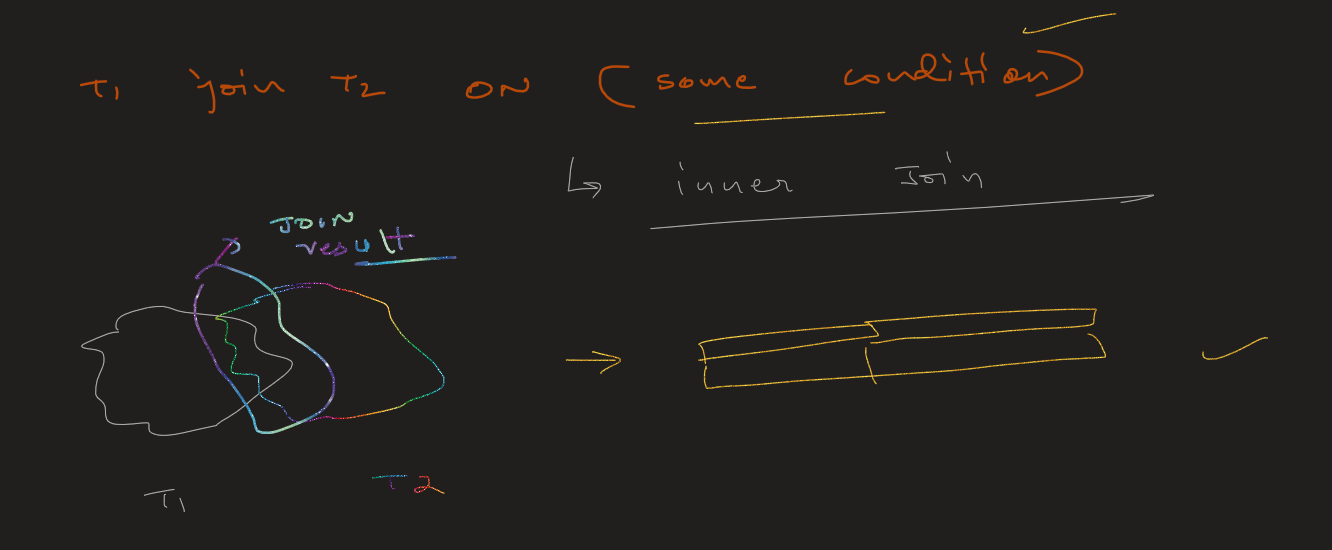 T1 join T2 ON (some condition)
inner Join
JOIN
result
T1
T2